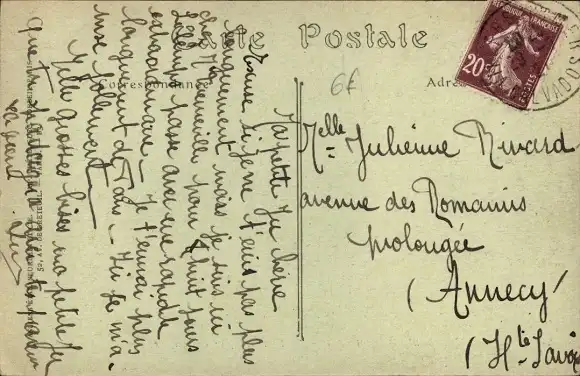 Carte Postale
Correspondance
Adresse
6f
REPUBLIQUE FRANÇAISE
20c
POSTES
CALVADOS
Ma petite Ju chérie
Excuse si je ne t'écris pas plus
longuement mais je suis ici
chez pour huit jours
Le temps passe avec une rapidité
extraordinaire. Je t'enverrai plus
longuement de Paris. Ici je m'a-
muse follement
Mille grosses bises ma petite Ju
que
Melle Julienne Rivard
avenue des Romains
prolongée
(Annecy)
(Hte Savoie